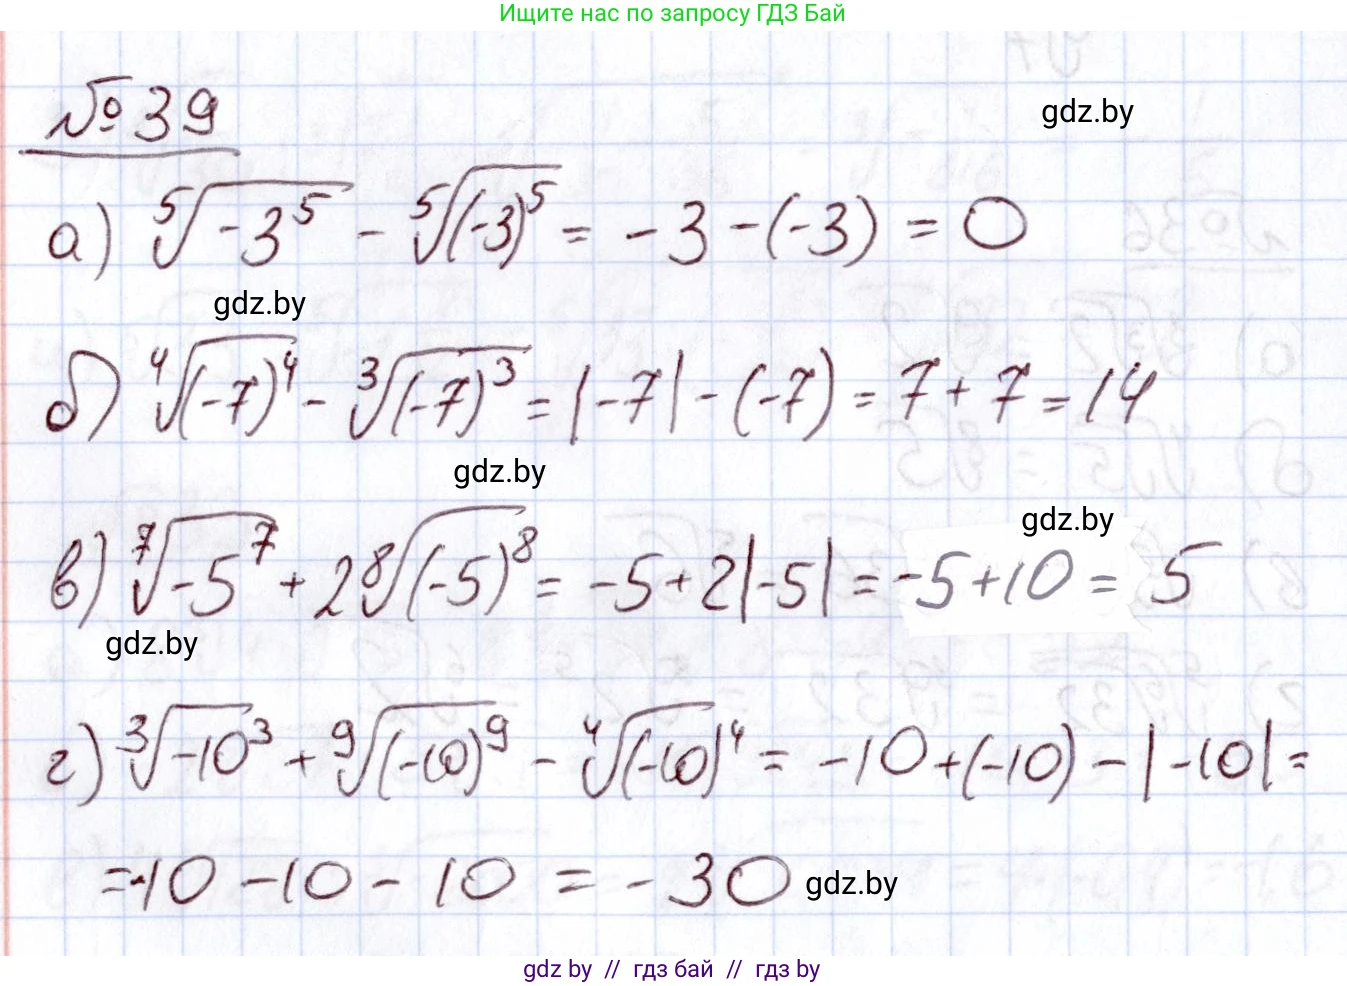 Ищите нас по запросу ГДЗ Бай
№ 39
gdz.by
а) ⁵√(-3⁵) - ⁵√((-3)⁵) = -3 - (-3) = 0
gdz.by
б) ⁴√((-7)⁴) - ³√((-7)³) = |-7| - (-7) = 7 + 7 = 14
gdz.by
gdz.by
в) ⁷√(-5⁷) + 2 ⁸√((-5)⁸) = -5 + 2|-5| = -5 + 10 = 5
gdz.by
г) ³√(-10³) + ⁹√((-10)⁹) - ⁴√((-10)⁴) = -10 + (-10) - |-10| =
= -10 - 10 - 10 = -30 gdz.by
gdz by // гдз бай // гдз by